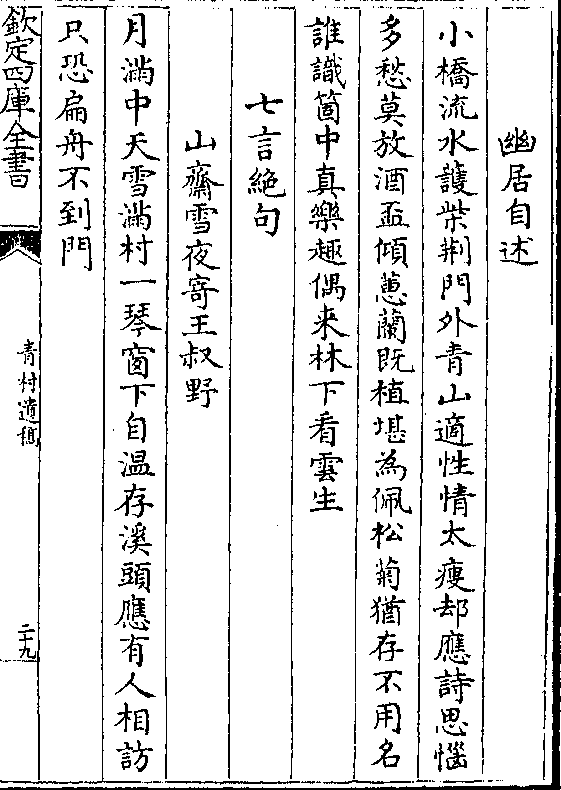 幽居自述
小橋流水護柴荆門外青山適性情太瘦却應詩思惱
多愁莫放酒盃傾蕙蘭既植堪為佩松菊猶存不用名
誰識箇中真樂趣偶来林下看雲生
七言絶句
山齋雪夜寄王叔野
月滿中天雪滿村一琴窗下自温存溪頭應有人相訪
只恐扁舟不到門
欽定四庫全書
青村遺稿
二十九